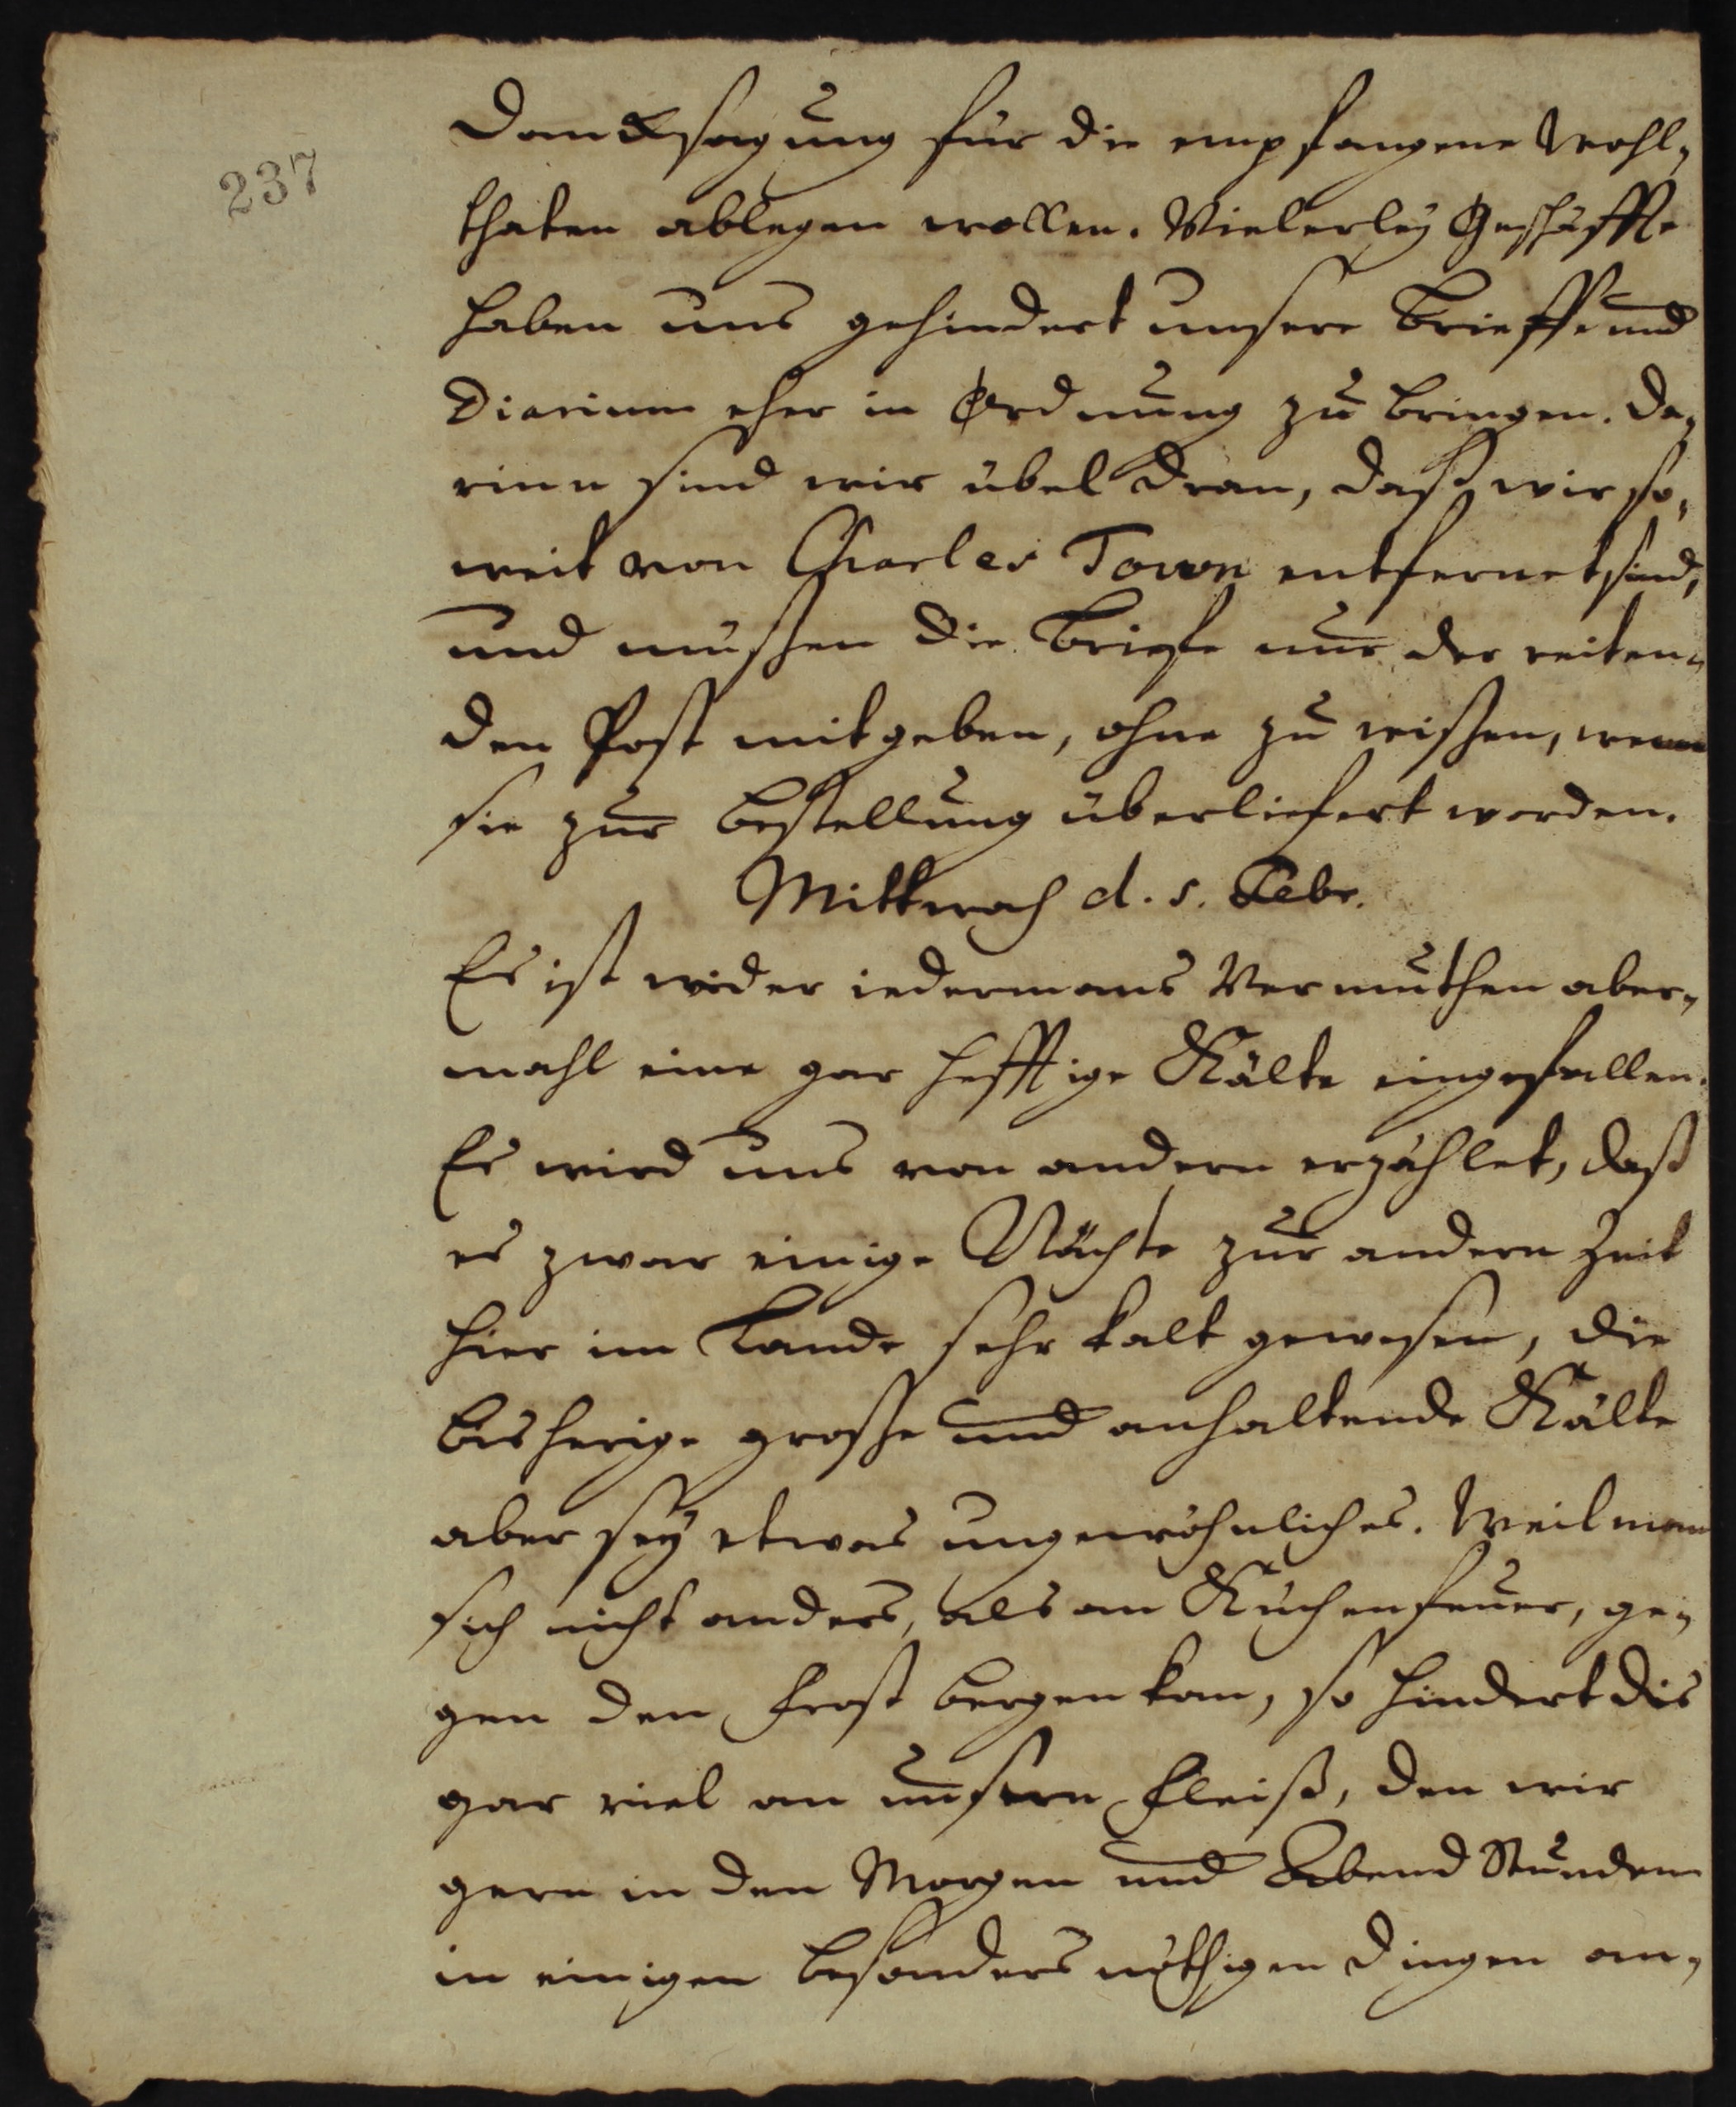 237
Dancksagung für die empfangene Wohl-
thaten ablegen wollen. Vielerley Geschäffte
haben uns gehindert unsere Brieffe und
Diarium eher in Ordnung zu bringen. Da-
rinn sind wir übel dran, daß wir so-
weit von Charles Town entfernet sind,
und müssen die Briefe nur der reiten-
den Post mitgeben, ohne zu wissen, wenn
sie zur Bestellung überliefert worden.
Mittwoch d. 5. Febr.
Es ist wider iedermans Vermuthen aber-
mahl eine gar hefftige Kälte eingefallen.
Es wird uns von andern erzählet, daß
es zwar einige Nächte zur andern Zeit
hier im Lande sehr kalt gewesen, die
bisherige grosse und anhaltende Kälte
aber sey etwas ungewöhnliches. Weil man
sich nicht anders, als am Küchenfeuer, ge-
gen den Frost bergen kan, so hindert dis
gar viel an unsern Fleiß, den wir
gern in den Morgen und Abend Stunden
in einigen besonders nöthigen Dingen an-